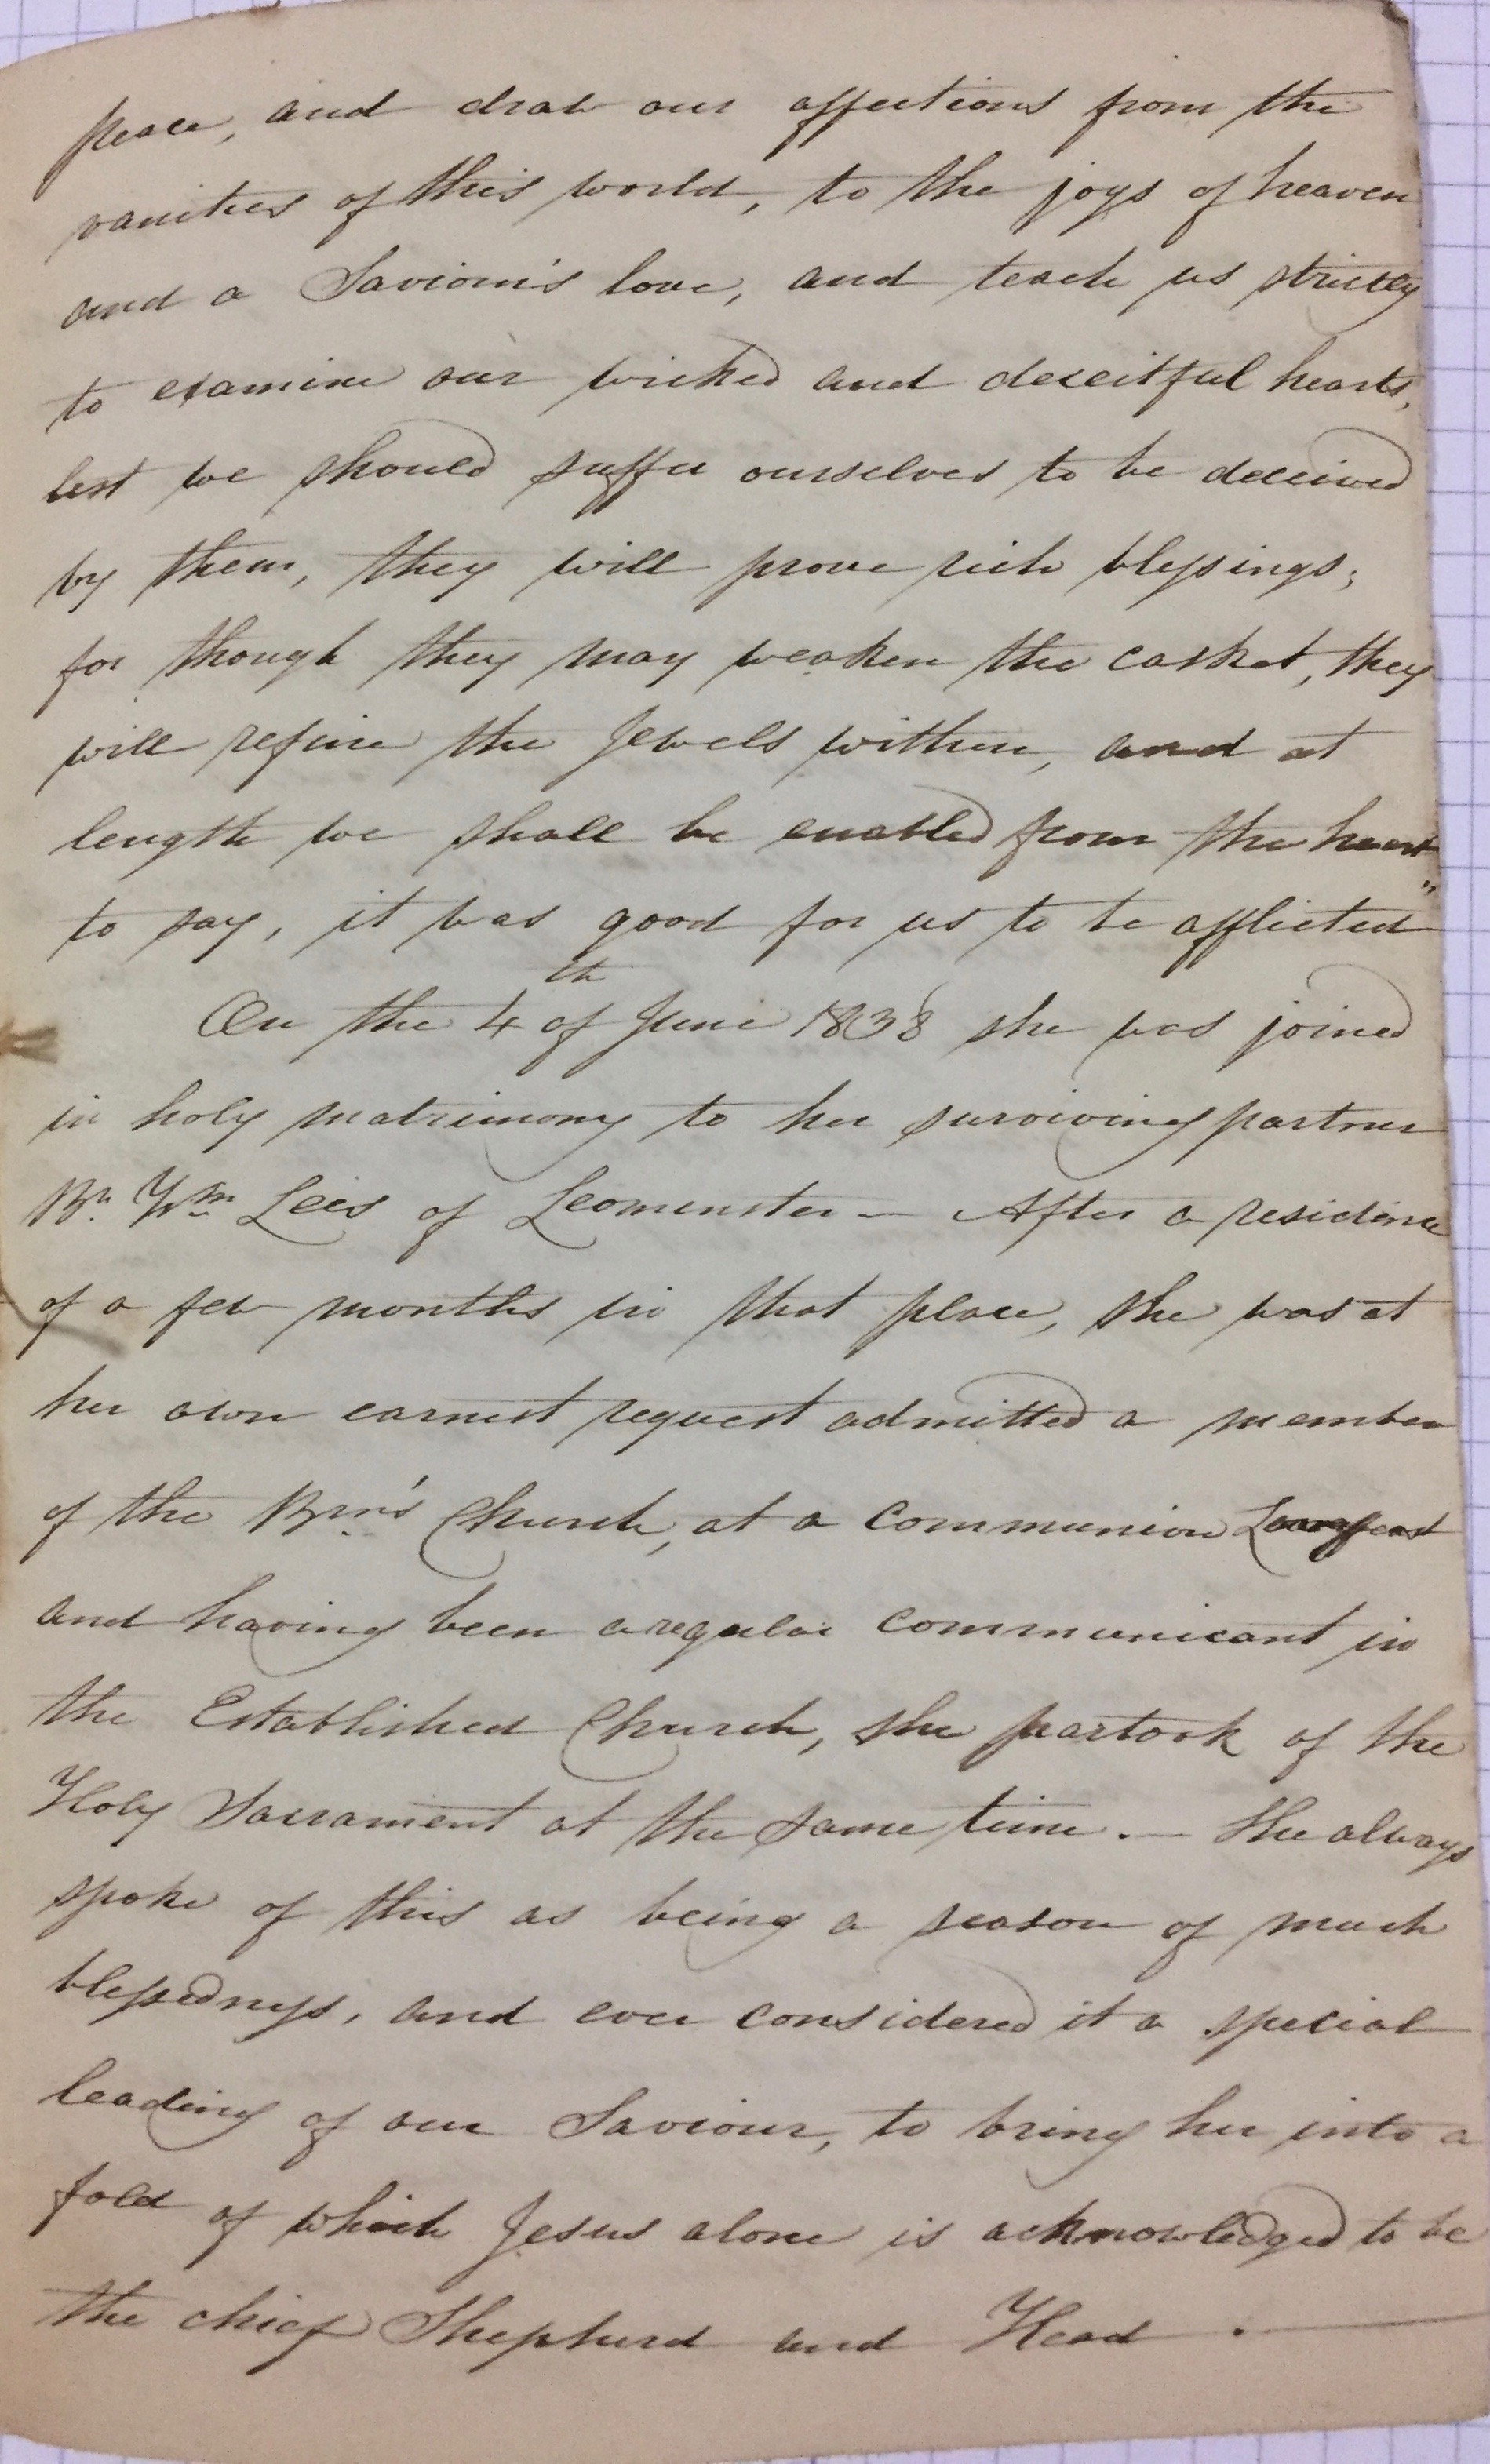 peace, and draw our affections from the
vanities of this world, to the joys of heaven
and a Saviour's love, and teach us strictly
to examine our wicked and deceitful hearts,
lest we should suffer ourselves to be deceived
by them, they will prove rich blessings;
for though they may weaken the casket, they
will refine the Jewels within, and at
length we shall be enabled from the heart
to say, it was good for us to be afflicted"
On the 4th of June 1838 she was joined
in holy matrimony to her surviving partner
Br. Wm Lees of Leominster — After a residence
of a few months in that place, she was at
her own earnest request admitted a member
of the Brn's Church, at a communion Lovefeast
and having been a regular communicant in
the Established Church, she partook of the
Holy Sacrament at the same time. — She always
spoke of this as being a season of much
blessedness, and ever considered it a special
leading of our Saviour, to bring her into a
fold of which Jesus alone is acknowledged to be
the chief Shepherd and Head . —